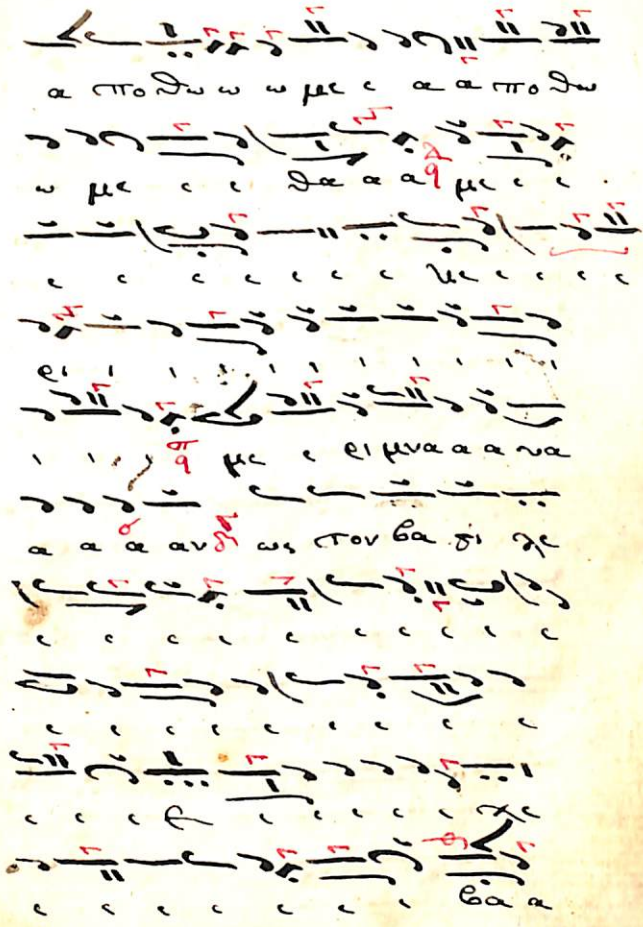 α πο θω ω ω με ε α α πο θω
ω με ε ε θα α α με ε ε
ε ε ε ε ε ε ε με ε ε ε ε
ρι ι ι ι ι ι ι ι ι ι
ι ι ι με ε ρι μνα α α να
α α α αν ως τον βα σι λε
ε ε ε ε ε ε ε ε ε ε
ε ε ε ε ε ε ε ε ε
ε ε ε ε ε ε ε ε λε
ε ε ε ε ε ε ε βα α